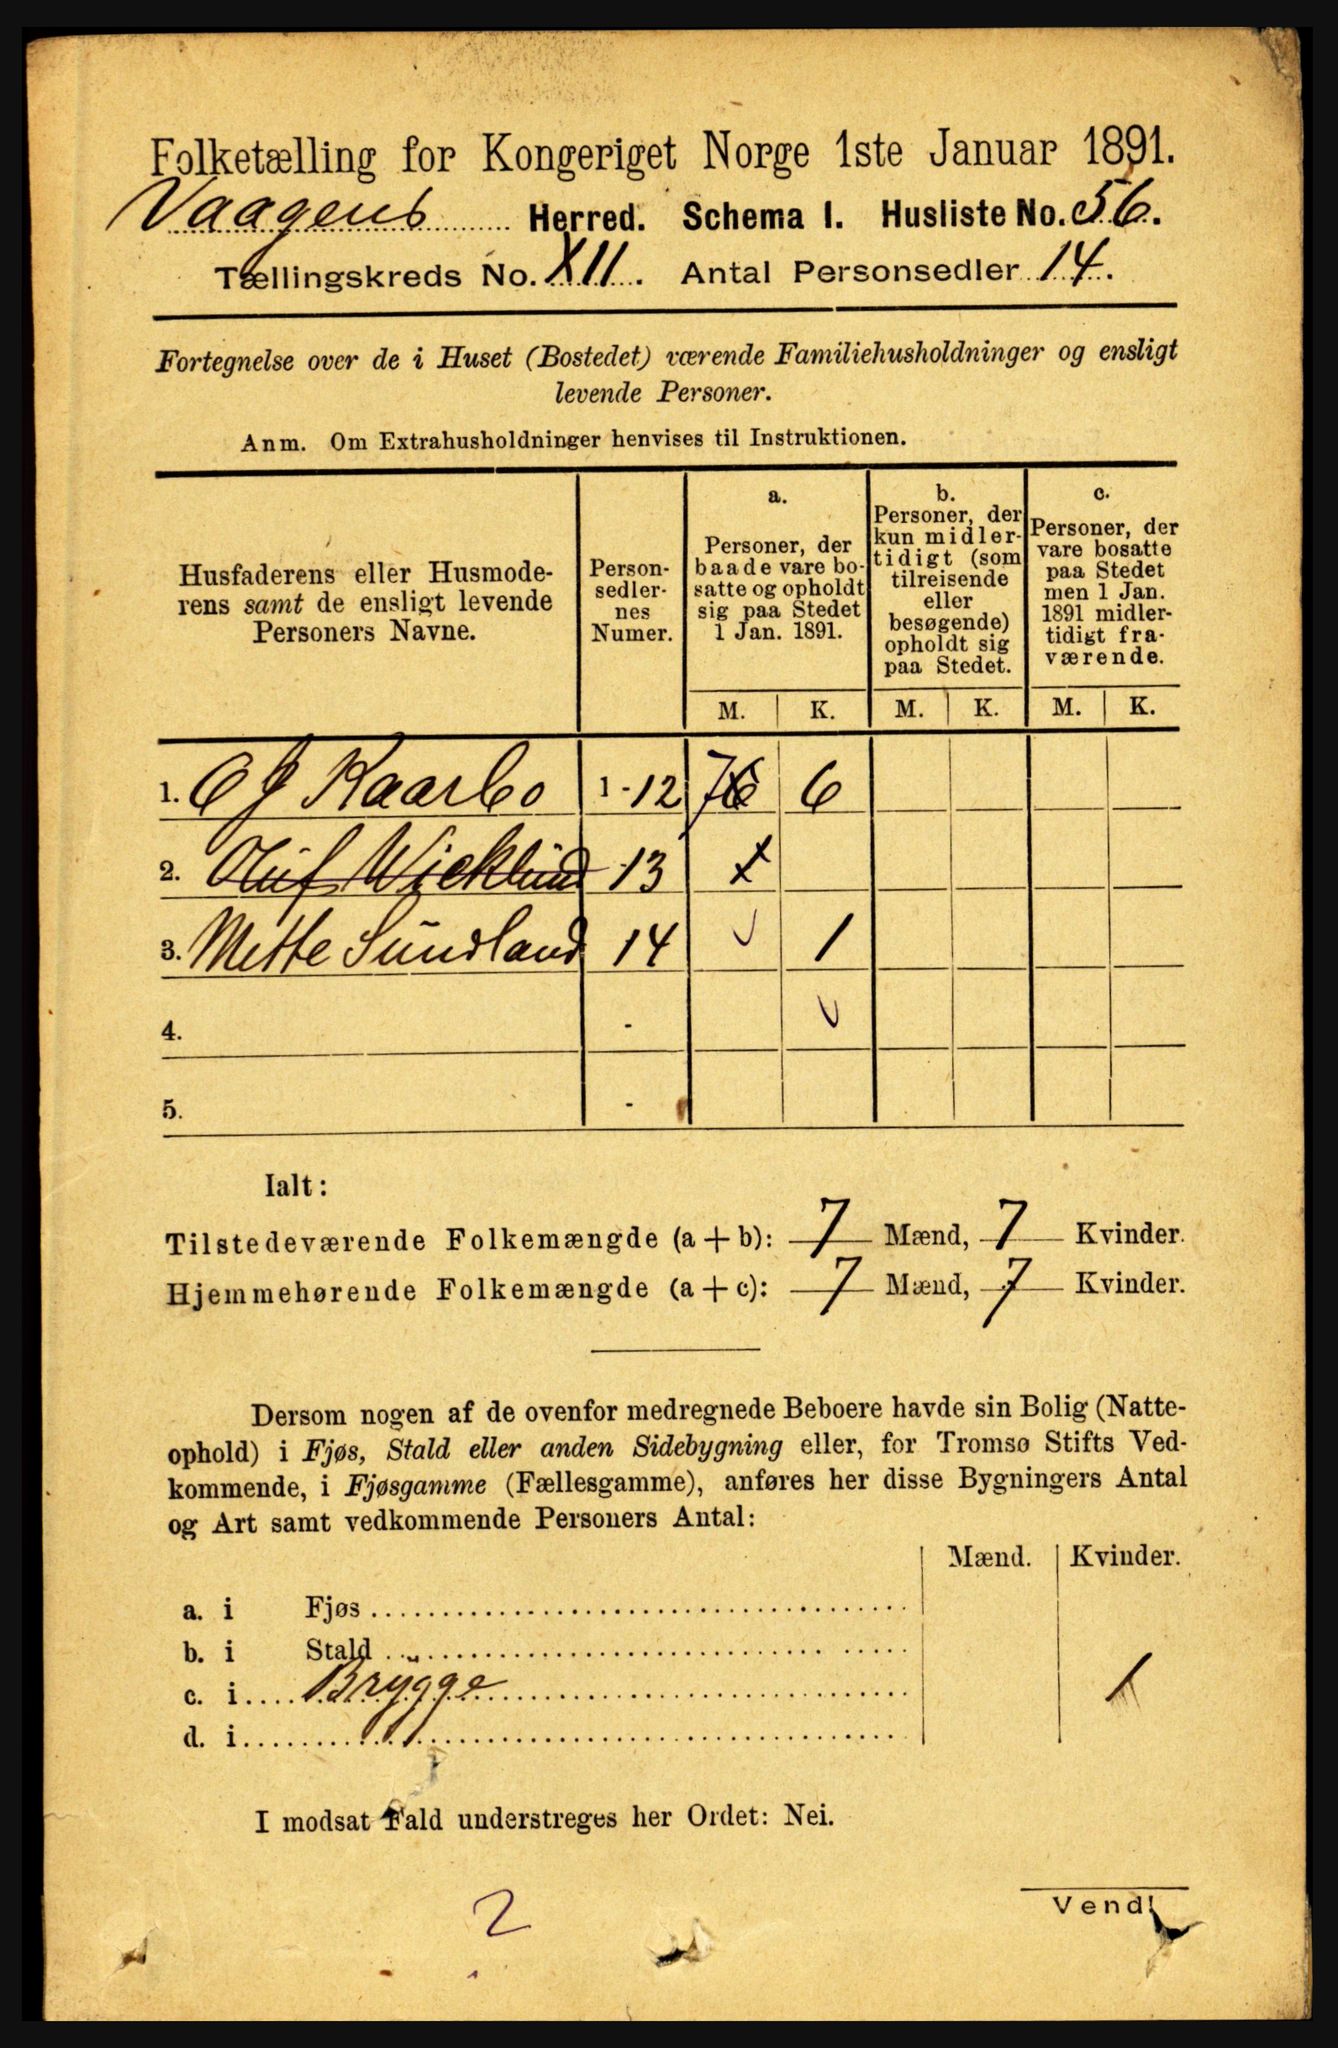 Folketælling for Kongeriget Norge 1ste Januar 1891.
Vaagens Herred. Schema I. Husliste No. 56.
Tællingskreds No. XII. Antal Personsedler 14.
Fortegnelse over de i Huset (Bostedet) værende Familiehusholdninger og ensligt
levende Personer.
Anm. Om Extrahusholdninger henvises til Instruktionen.
Husfaderens eller Husmode-
rens samt de ensligt levende
Personers Navne.
Person-
sedler-
nes
Numer.
a.
Personer, der
baade vare bo-
satte og opholdt
sig paa Stedet
1 Jan. 1891.
b.
Personer, der
kun midler-
tidigt (som
tilreisende
eller
besøgende)
opholdt sig
paa Stedet.
c.
Personer, der
vare bosatte
paa Stedet
men 1 Jan.
1891 midler-
tidigt fra-
værende.
M. K. M. K. M. K.
1. C J Kaarbo 1-12 7 6
2. Oluf Wicklund 13
3. Mette Sundland 14 1
4. -
5. -
Ialt:
Tilstedeværende Folkemængde (a + b): 7 Mænd, 7 Kvinder.
Hjemmehørende Folkemængde (a + c): 7 Mænd, 7 Kvinder.
Dersom nogen af de ovenfor medregnede Beboere havde sin Bolig (Natte-
ophold) i Fjøs, Stald eller anden Sidebygning eller, for Tromsø Stifts Ved-
kommende, i Fjøsgamme (Fællesgamme), anføres her disse Bygningers Antal
og Art samt vedkommende Personers Antal:
Mænd. Kvinder.
a. i Fjøs
b. i Stald
c. i Brygge 1
d. i
I modsat Fald understreges her Ordet: Nei.
2
Vend!